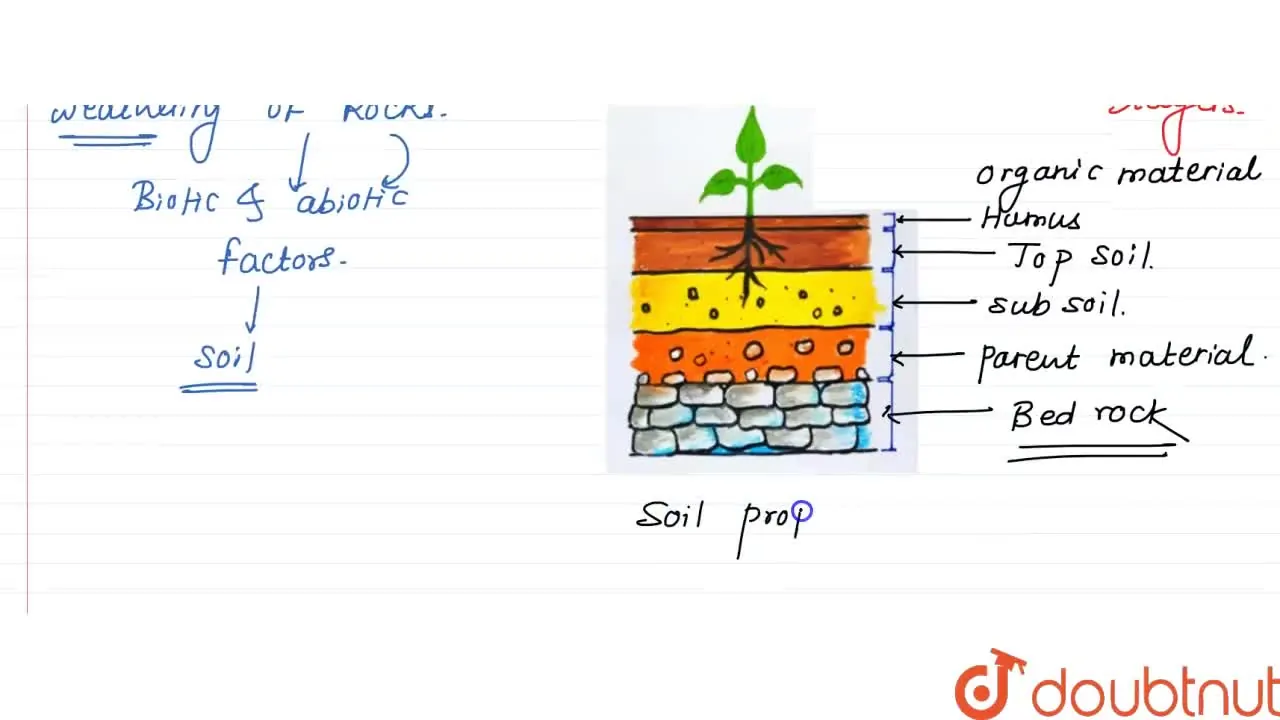 weathering of Rocks.
Biotic & abiotic
factors.
soil
organic material
Humus
Top soil.
sub soil.
parent material.
Bed rock
Soil prop
doubtnut